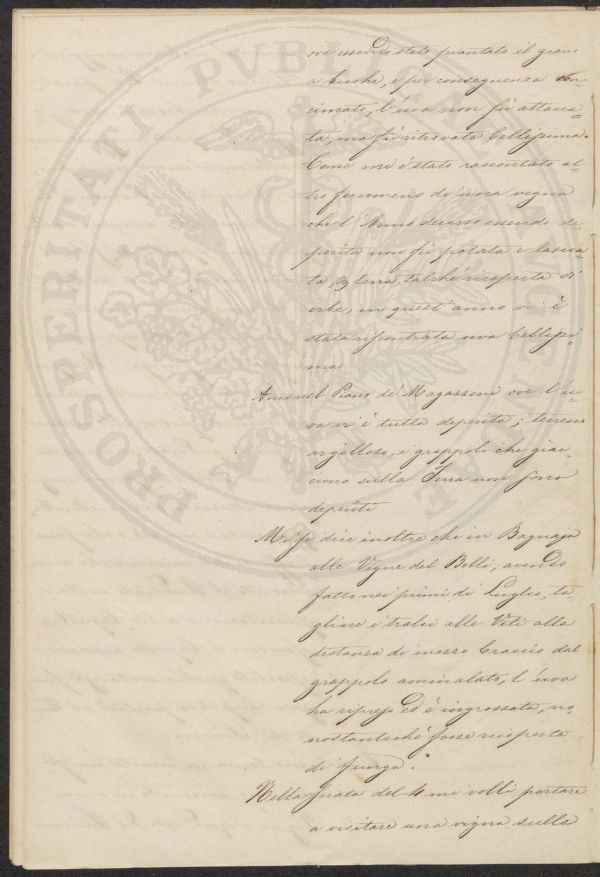 ove essendo stato piantato il grano
a buche, e per conseguenza con=
cimato, l'uva non fù attacca=
ta, ma fù ritrovata bellissima.
Come mi è stato raccontato al=
tro fenomeno di una vigna
che l'Anno decorso essendo de=
perita non fù potata e lascia=
ta terra, talchè ricoperta di
erbe, in quest'anno vi è
stata riscontrata uva bellissi=
ma
Anco nel Piano de' Magazzini ove l'u=
va vi è tutta deperita; terreno
argilloso, i grappoli che giac=
ciono sulla Terra non sono
deperiti
Mi si dice inoltre che in Bagnaja
alle Vigne del Belli, avendo
fatto nei primi di Luglio, ta=
gliare i tralci alle Viti alla
distanza di mezzo braccio dal
grappolo ammalato, l'uva
hà ripreso ed è ingrossata, no=
nostantechè fosse ricoperta
di fungo.
Nella serata del 4 mi volli portare
a visitare una vigna sulla
PROSPERITATI PVBLICAE